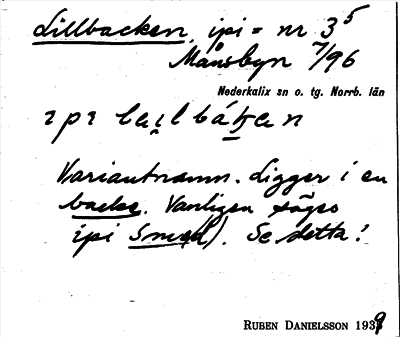 Lillbacken, ipi = nr 3⁵
Månsbyn 7/96
Nederkalix sn o. tg. Norrb. län
ipi
Variantnamn. Ligger i en
backe. Vanligen säges
ipi Smed). Se detta!
RUBEN DANIELSSON 1939